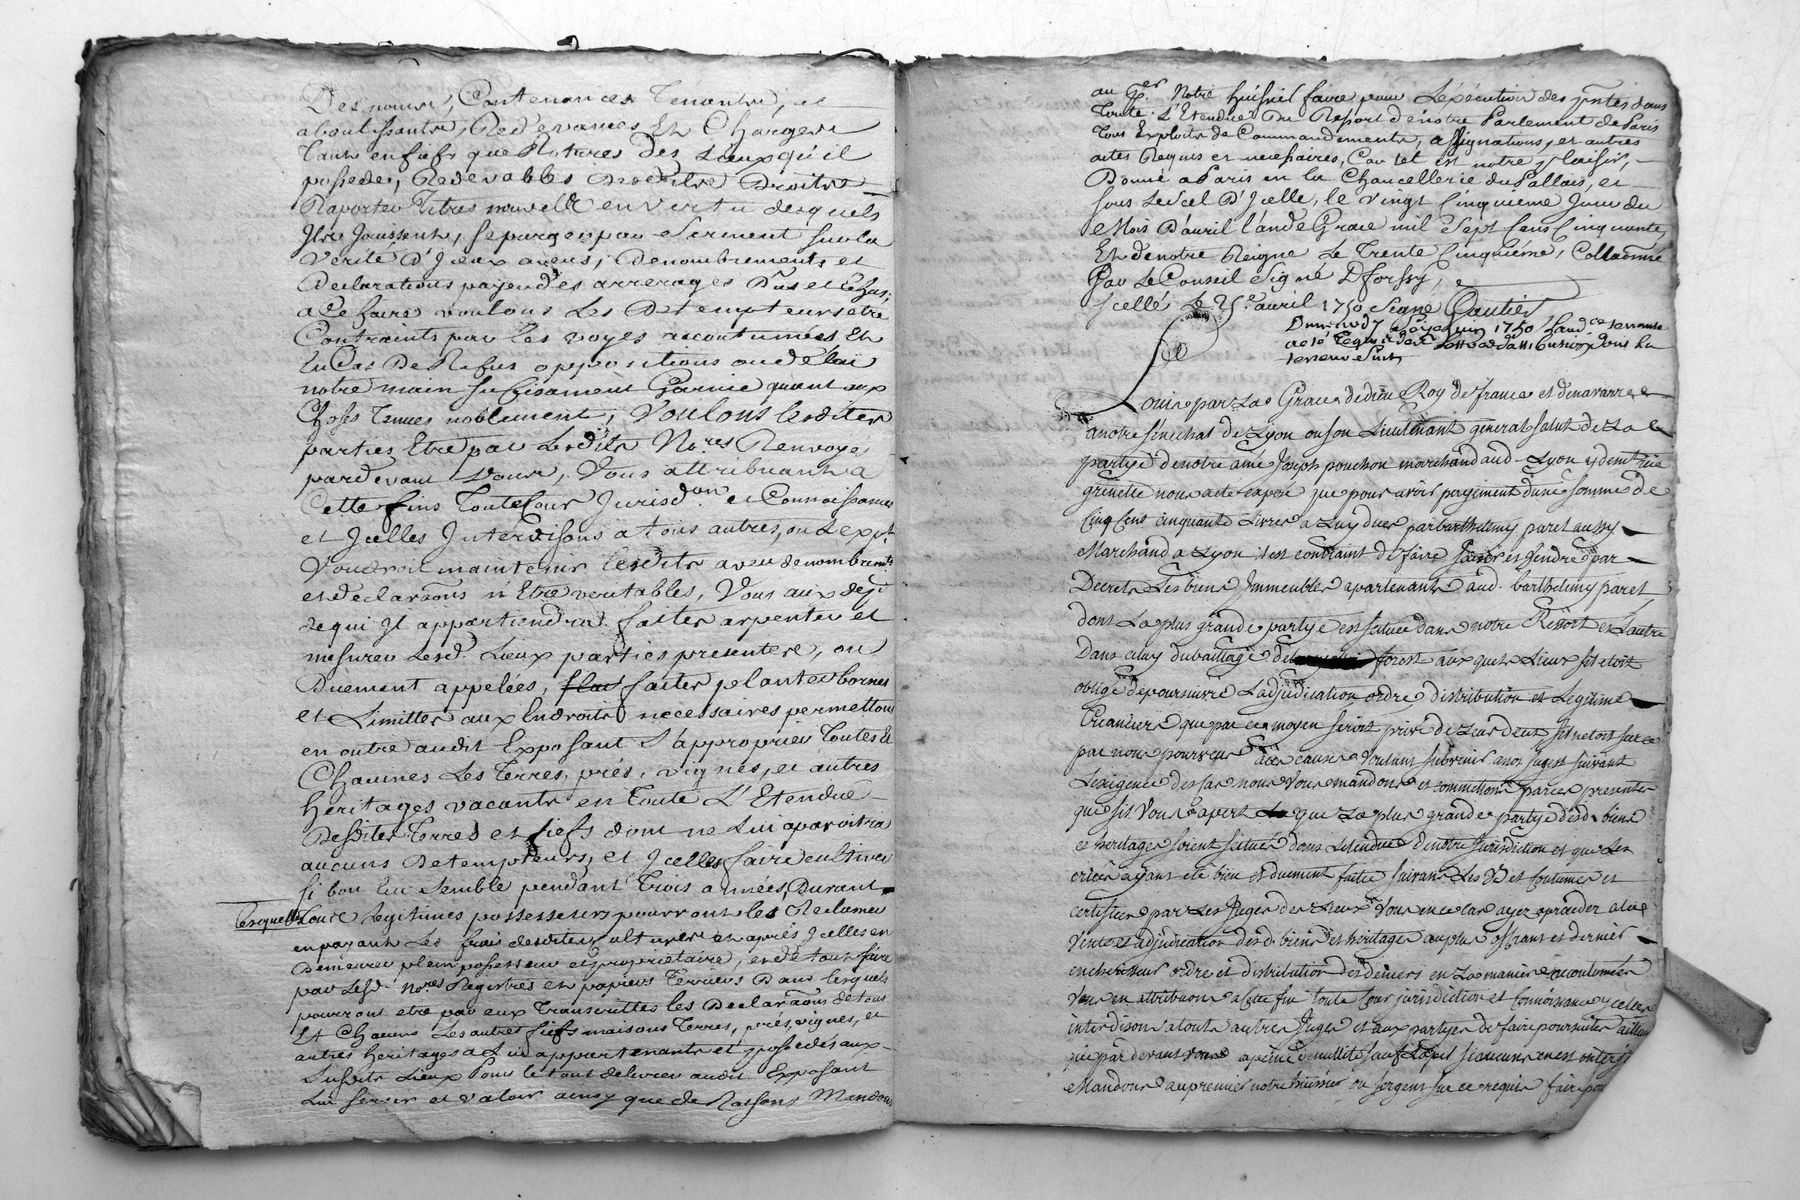 Contenances Tenants, et
aboutissants, Redevances Et Charges
tant en fiefs que Rotures Des Lieux qu'il
possede, Redevables Droits
Raporter Titres nouvelle en vertu desquels
Ilz Jouissent, se purger par Serment sur la
Verité D'Iceux aveus, Denombrements et
Declarations payer des arrerages Dus et
a Ce faire voulons Les Detempteurs etre
Contraints par les voyes accoutumées Et
En Cas De Refus oppositions ou delai
notre main sufisament Garnie quant aux
Choses Tenues noblement, Voulons lesdites
parties Etre par Lesdits No.res Renvoyé
pardevant Vous, Vous attribuant a
Cette fins Toute Cour Jurisd.on et Connoissance
et Icelles Interdisons a tous autres, ou L'exp.t
Voudroit maintenir lesdits aveu denombrem.ts
et declaraons n'Etre veritables, Vous aux dep.t
de qui Il appartiendra faites arpenter et
mesurer Lesd. Lieux parties presentes, ou
Duement appelées, faites planter bornes
et Limittes aux Endroits necessaires permettons
en outre audit Exposant S'approprier Toutes Et
Chacunes Les Terres, prés, vignes, et autres
heritages vacants en Toute L'Etendue
Desdites Terres et fiefs dont ne Lui aparoitra
aucuns Detempteurs, et Icelles faire cultiver
si bon lui Semble pendant Trois années, Durant
Lesquelles Loure legitimes possesseurs pourront les Reclamer
en payant Les frais desdites cultures et aprés Icelles en
Demeurer plein possesseur et proprietaire, et de tout faire
par Lesd. No.res Registres et papiers Terriers Dans lesquels
pourront etre par eux Transcrittes les Declaraons de tous
Et Chacuns Les autres fiefs maisons Terres, prés, vignes, et
autres heritages a Lui appartenants et possedés aux
Susdits Lieux Pour le tout delivrer audit Exposant
Lui servir et valoir ainsy que de Raisons Mandons
au p.er Notre huissier faire pour L'execution des p.ntes dans
Toute L'Etendue Du Resort de notre Parlement de Paris
Tous Exploits de Commandements, assignations, et autres
actes Requis et necessaires, Car tel est notre plaisir,
Donné a Paris en la Chancellerie du Pallais, et
sous Le Scel D'Icelle, le Vingt Cinquieme Jour du
Mois D'avril l'an de Grace mil Sept Cens Cinquante,
Et de notre Reigne Le Trente Cinquiéme, Collaonné
Par Le Conseil Signé
scellé Le 25.e avril 1750 Signé Gautier
1750 Laud.ce tenante
Louis par La Grace de dieu Roy de france et de navarre
a notre sénéchal de Lyon ou son Lieutenant général salut de La
partye de notre amé Joseph pouchon marchand aud. Lyon y dem.t rüe
grénette nous a eté exposé que pour avoir payement d'une somme de
Cinq Cent cinquante Livres a Luy dües par barthelemy paret aussy
Marchand a Lyon il est contraint de faire saisir et vendre par
Decret Les biens Immeubles apartenants aud. barthelemy paret
dont La plus grande partye est située dans notre Ressort et L'autre
Dans celuy du bailliage de forest aux quels Lieux
obligé de poursuivre L'adjudication ordre distribution et Legitime
Créanciers que par ce moyen seroit privé de Leur deub
par nous pourveus a ces causes Voulant subvenir a nos sujets suivant
L'exigence des cas nous Vous mandons et commettons par ces presentes
que s'il Vous apert que La plus grande partye desd. biens
et heritages soient situés dans L'étendue de notre Jurisdiction et que Les
criées ayant eté bien et duement faites suivant Les et Coutumes et
certifiées par Les Juges des Lieux Vous en ce cas ayez a procéder a la
Vente et adjudication desd. biens et heritages au plus offrant et dernier
encherisseur ordre et distribution des deniers en La maniere acoutumée
Vous en attribuons a Cette fin toute Cour jurisdiction et connoissance ycelles
interdisons a touts autres Juges et aux partyes de faire poursuites ailleurs
que par devant vous a peine de nullité
Mandons au premier notre huissier ou sergent sur ce requis faire pour